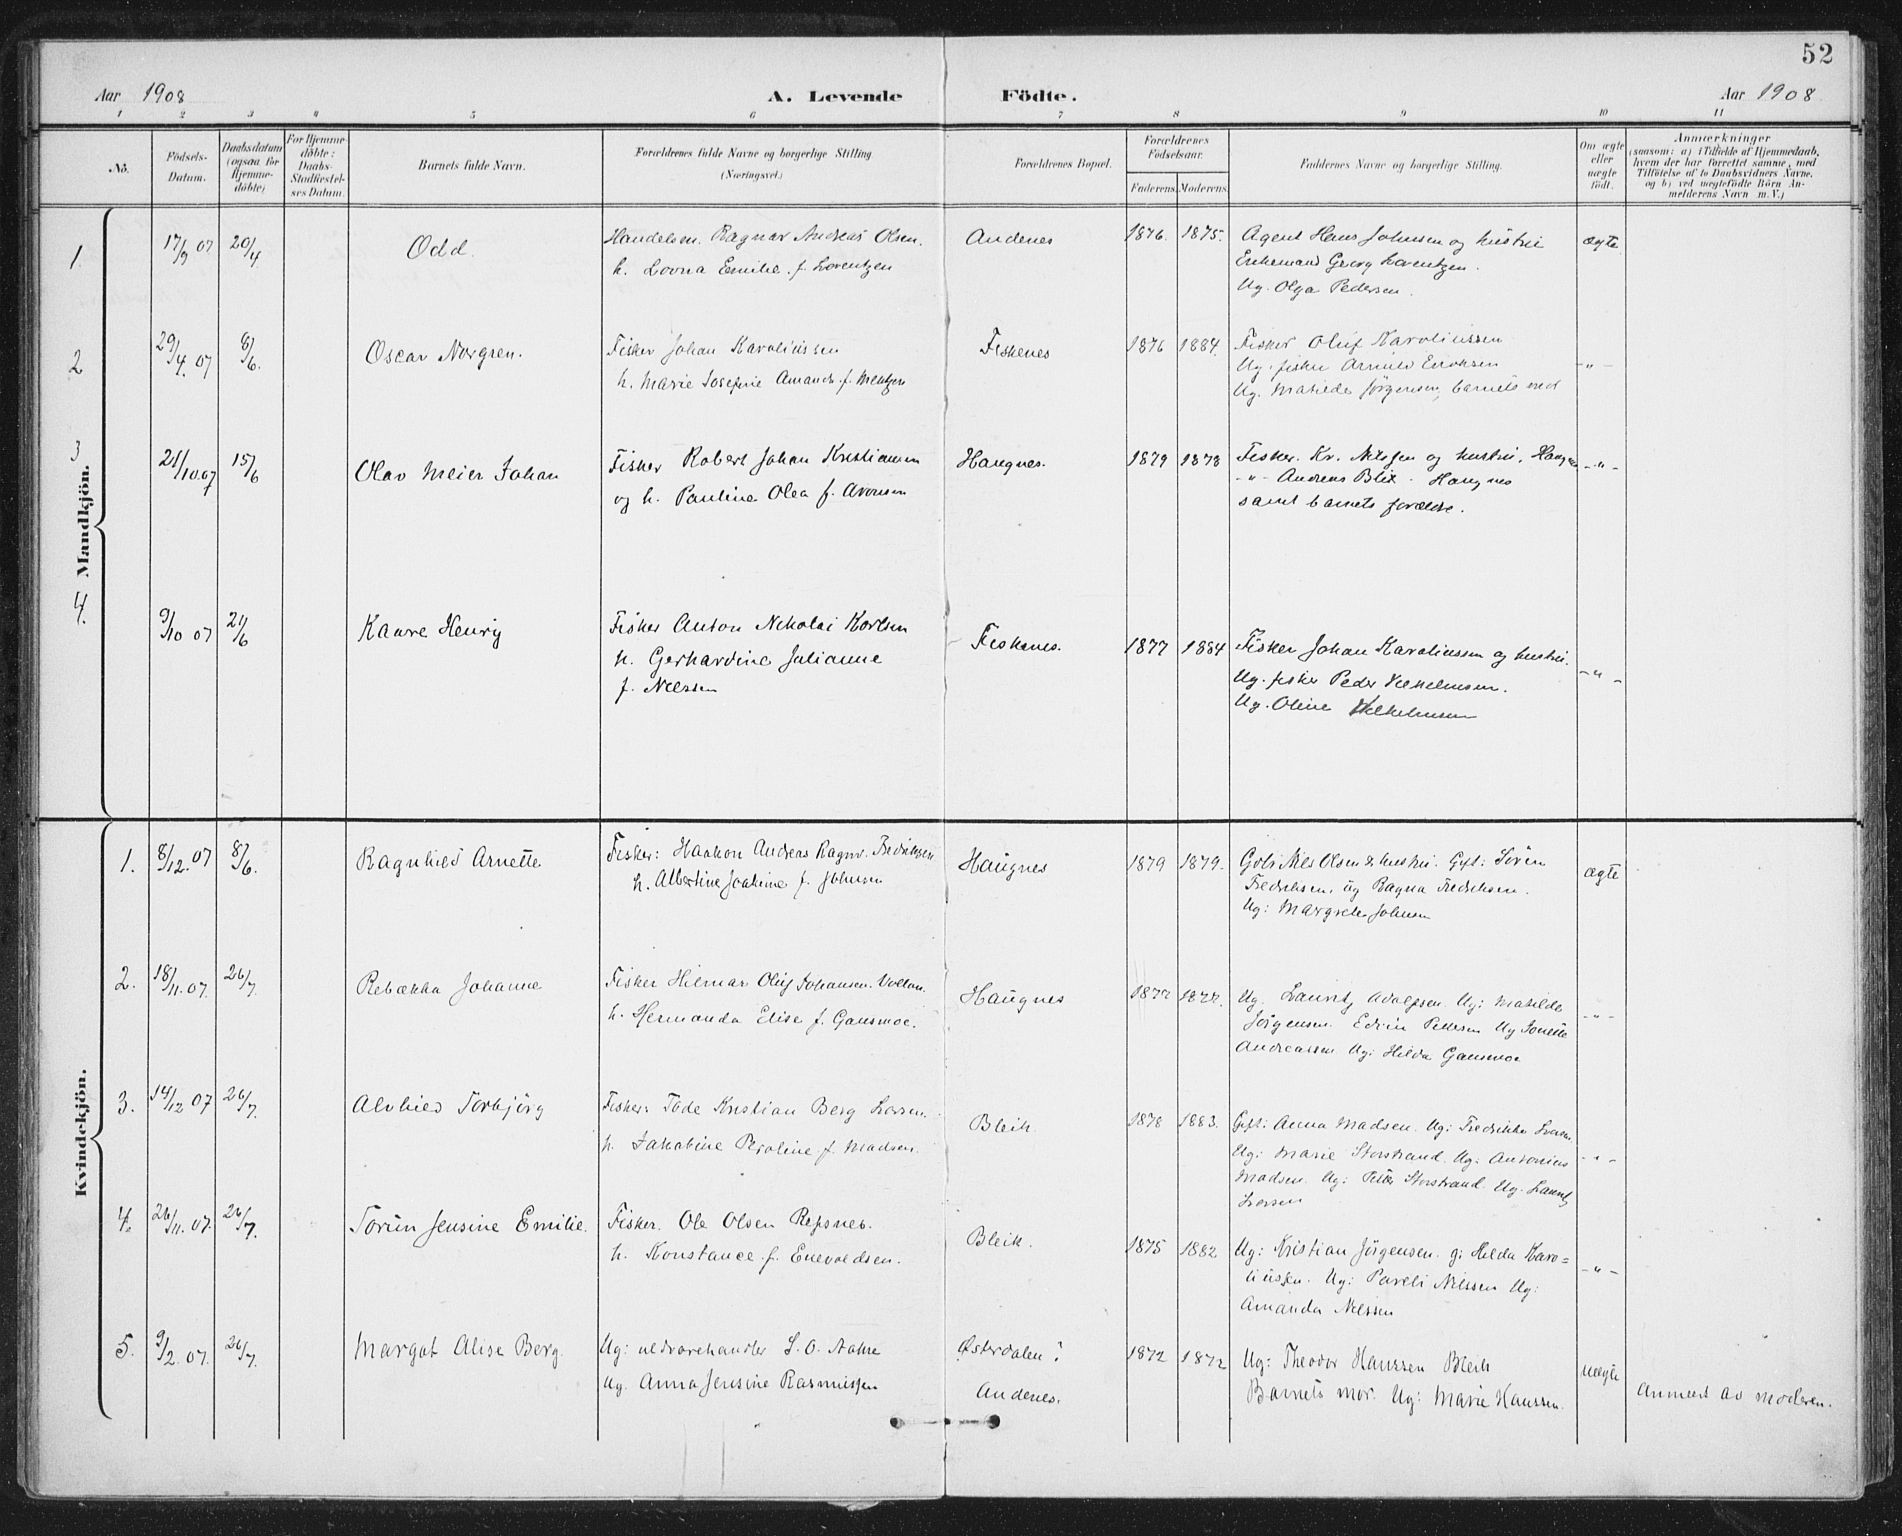 52
Aar 1908 A. Levende Födte. Aar 1908
1 2 3 4 5 6 7 8 9 10 11
No.
Födsels-Datum.
Daabsdatum (ogsaa for Hjemme-döbte)
For Hjemme-döbte: Daabs-Stadfæstel-ses Datum.
Barnets fulde Navn.
Forældrenes fulde Navne og borgerlige Stilling (Næringsvei.)
Forældrenes Bopæl.
Forældrenes Födselsaar.
Faderens Moderens
Faddernes Navne og borgerlige Stilling.
Om ægte eller uægte födt.
Anmærkninger
(saasom: a) i Tilfælde af Hjemmedaab,
hvem der har forrettet samme, med
Tilföielse af to Daabsvidners Navne,
og b) ved uægtefödte Börn An-
melderens Navn m. V.)
Mandkjön.
1. 17/9 07 20/4 Odd. Handelsm. Ragnar Andreas Olsen. Andenes 1876. 1875. Agent Hans Johnsen og hustru ægte
h. Lovna Emilie f. Lorentzen Enkemand Georg Lorentzen.
Ug. Olga Pedersen.
2 29/4. 07 8/6. Oscar Norgren. Fisker Johan Karoliussen Fiskenes 1876 1884. Fisker Oluf Karoliussen -"-
h. Marie Josefine Amanda f. Mentzen Ug. fisker Arnild Eriksen
Ug. Matilde Jörgensen, barnets mor
3 21/10.07 15/6 Olav Meier Johan Fisker Robert Johan Kristiansen Haugnes. 1879 1878 Fisker. Kr. Nilsen og hustru, Haugnes -"-
og h. Pauline Olea f. Aronsen -"- Andreas Blix. Haugnes
samt barnets forældre.
4. 9/10 07 21/6 Kaare Henry Fisker Anton Nikolai Karlsen Fiskenes. 1877 1884 Fisker Johan Karoliussen og hustru. -"-
h. Gerhardine Julianne Ug. fisker Peder Vilhelmsen.
f. Nilssen Ug. Oline Vilhelmsen
Kvindekjön.
1. 8/12. 07 8/6. Ragnhild Arnette Fisker: Haakon Andreas Ragnv. Fredriksen Haugnes 1879 1879. Gbr. Nils Olsen & hustru. Gift: Sören ægte
h. Albertine Joakime f. Johnsen Fredriksen, ug Ragna Fredriksen.
Ug: Margrete Johnsen
2. 18/11. 07. 26/7. Rebækka Johanne Fisker Hilmar Oluf Johansen Vollan. Haugnes 1877 Ug. Lauritz Adolfsen. Ug: Matilde -"-
h. Hermanda Elise f. Gansmoe. Jörgensen. Edvin Pettersen Ug Jonette
Andreassen Ug: Hilda Gansmoe
3. 14/12 07 26/7. Alvhild Torbjörg Fisker: Tode Kristian Berg Larsen. Bleik 1878 1883. Gift: Anna Madsen. Ug: Fredrikke Larsen -"-
h. Jakobine Peroline f. Madsen. Ug: Marie Storstrand. Ug: Antonius
Madsen. Ug: Peter Storstrand. Ug. Lauritz
Larsen
4. 26/11. 07. 26/7. Torun Jensine Emilie. Fisker. Ole Olsen Repsnes. Bleik. 1875 1882 Ug: Kristian Jörgensen. g: Hilda Karo= -"-
h. Konstance f. Enevoldsen. liussen. Ug: Pareli Nilssen Ug:
Amanda Nilssen
5. 9/2. 07. 26/7. Margot Alise Berg. Ug: uldvarehandler S. O. Østerdalen: 1872 1872 Ug: Theodor Hanssen Bleik uægte
Ug. Anna Jensine Rasmussen Andenes. Barnets mor. Ug: Marie Hanssen. Anmeldt av moderen.